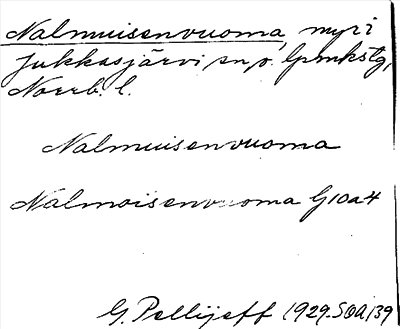 Nalmuisenvuoma, myri
Jukkasjärvi sn o. lpmkstg,
Norrb. l.
Nalmuisenvuoma
Nalmoisenvuoma G10a4
G. Pellijeff 1929. SOÄ 139